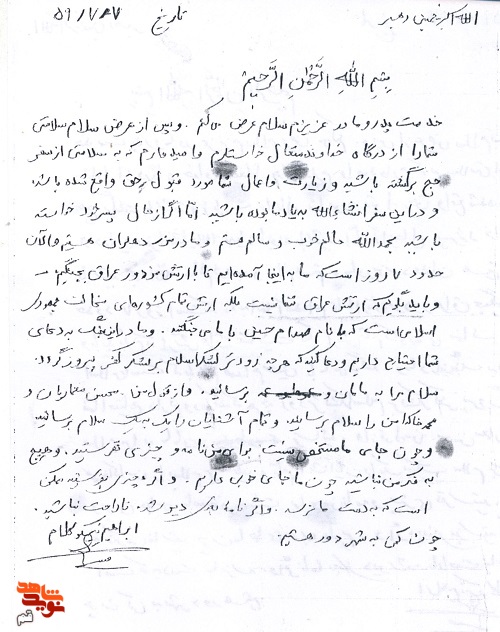 الله اکبر خمینی رهبر
تاریخ ۵۹/۷/۲۷
بِسْمِ اللهِ الرَّحْمٰنِ الرَّحیمْ
خدمت پدر و مادر عزیزم سلام عرض می‌کنم. و پس از عرض سلام سلامتی
شما را از درگاه خداوند متعال خواستارم و امیدوارم که به سلامتی از سفر
حج برگشته باشید و زیارت و اعمال شما مورد قبول حق واقع شده باشد
و در این سفر انشاءالله به یاد ما بوده باشید اما اگر از حال پسر خود خواسته
باشید بحمدالله حالم خوب و سالم هستم و ما در مرز دهلران هستیم و الان
حدود ۷ روز است که ما به اینجا آمده‌ایم تا با ارتش مزدور عراق بجنگیم
و باید بگویم که ارتش عراق تنها نیست بلکه ارتش تمام کشورهای مخالف جمهوری
اسلامی است که با نام صدام حسین با ما می‌جنگند. و ما در این جنگ به دعای
شما احتیاج داریم و دعا کنید که هرچه زودتر لشکر اسلام بر لشکر کفر پیروز گردد.
سلام مرا به مامان و برسانید. و از قول من محسن معماریان و
محمد خاکدامن را سلام برسانید و تمام آشنایان را یک به یک سلام برسانید
و چون جای ما مشخص نیست برای من نامه و چیزی نفرستید. و هیچ
به فکر من نباشید چون ما جای خوبی داریم. و اگر چیزی بفرستید ممکن
است که به دست ما نرسد. و اگر نامه‌های دیر شد. ناراحت نباشید.
چون کمی به شهر دور هستیم.
ابراهیم نیکو کلام
شاهد
نوید